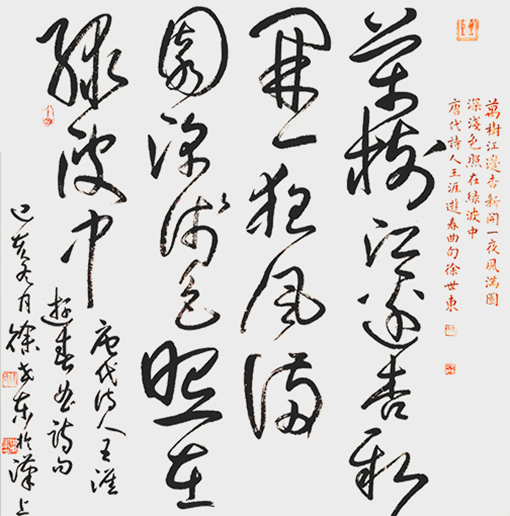 萬樹江邊杏新開一夜風滿園
深淺色照在綠波中
唐代詩人王涯遊春曲句徐世東
萬樹江邊杏新
開一夜風滿
園深淺色照在
綠波中
唐代诗人王涯
遊春曲詩句
己亥冬月徐世东於漢上